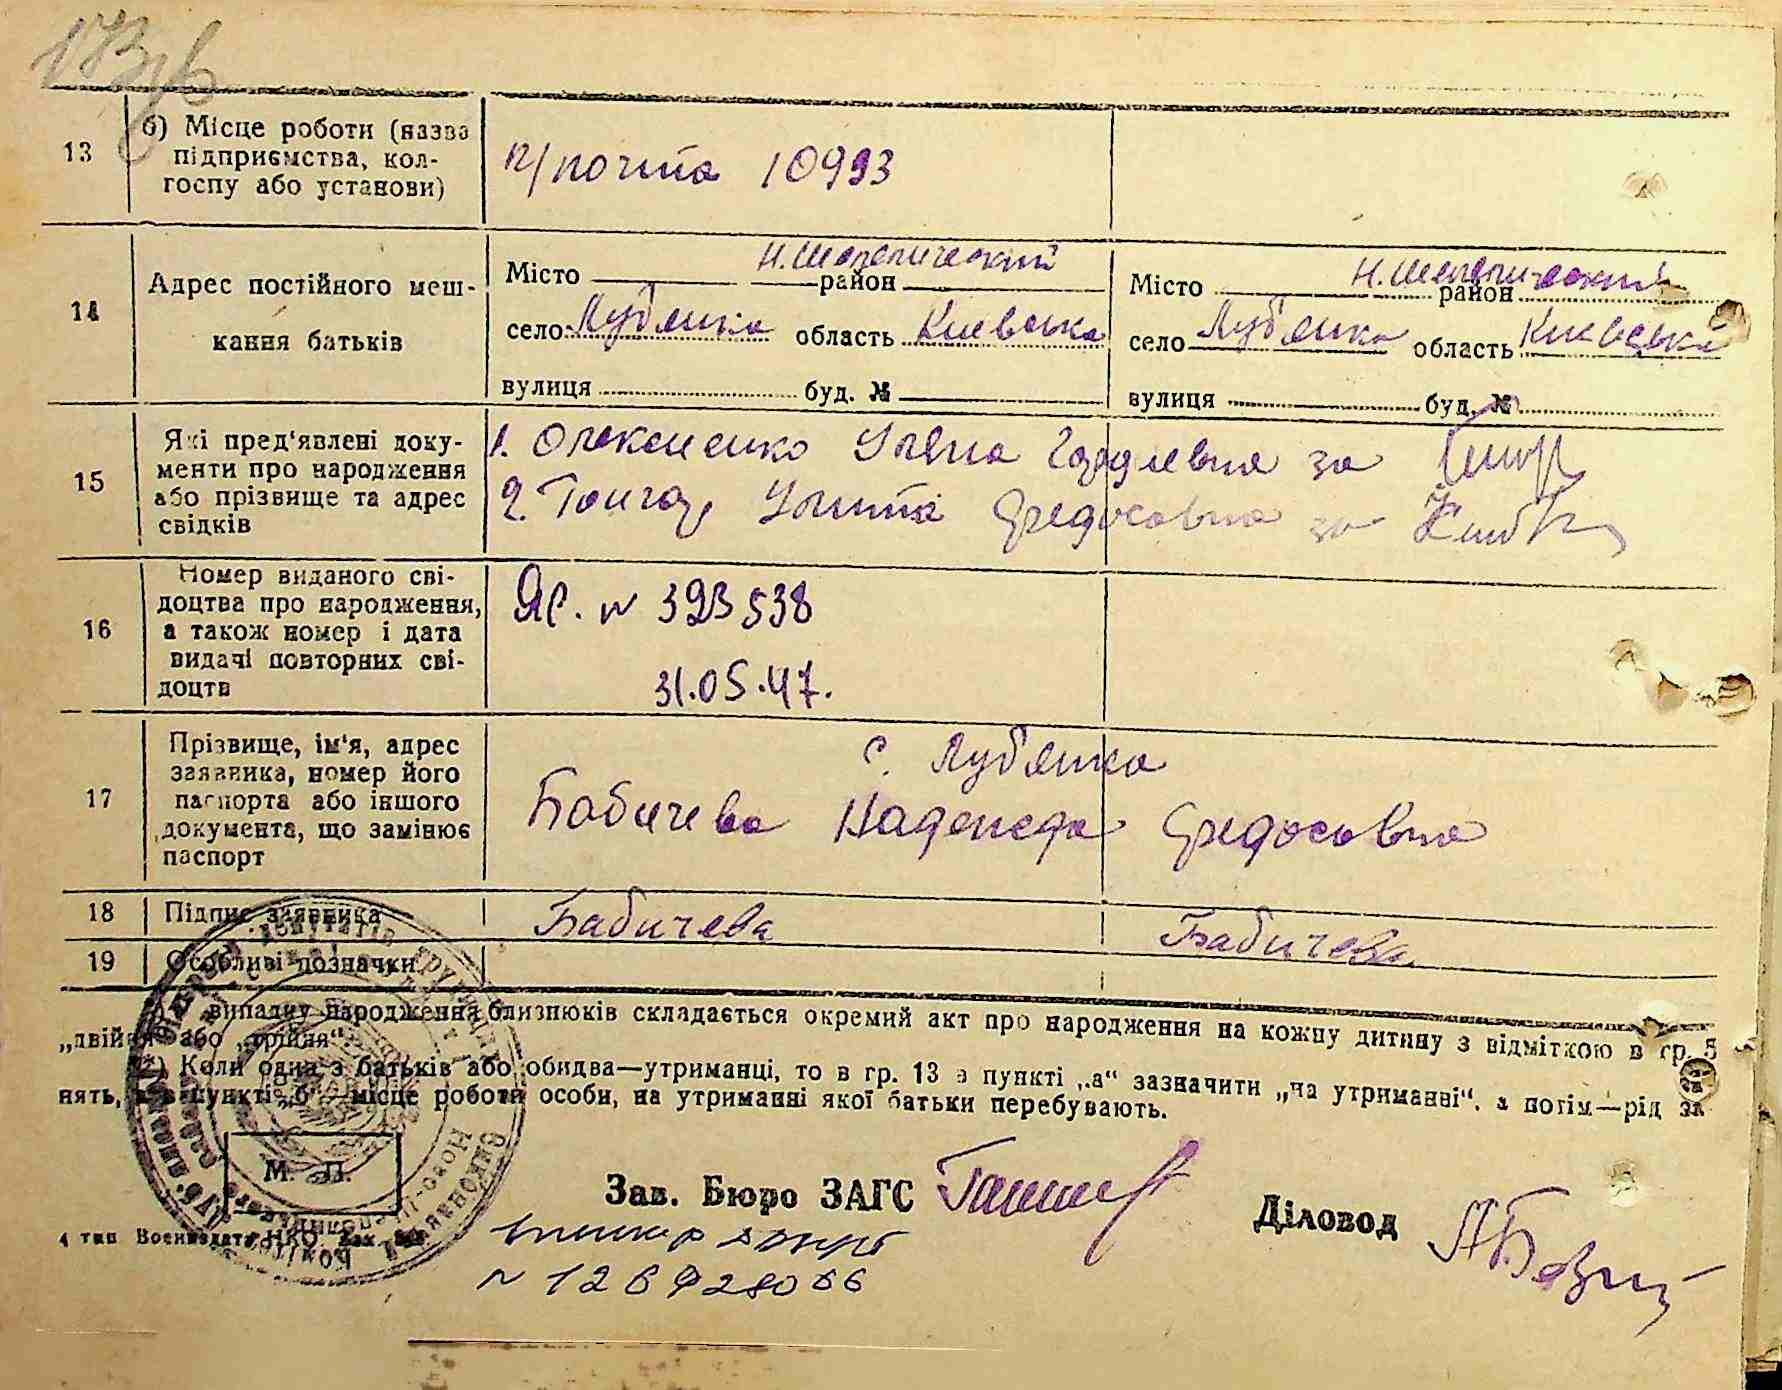 173 зв
13
б) Місце роботи (назва підприємства, колгоспу або установи)
п/почта 10993
14
Адрес постійного мешкання батьків
Місто район Н.Шепелический
село Лубянка область Киевська
вулиця буд. №
Місто район Н.Шепелический
село Лубянка область Киевська
вулиця буд. №
15
Які пред'явлені документи про народження або прізвище та адрес свідків
1. Олексиенко Уляна Гордиевна за
2. Федосовна за
16
Номер виданого свідоцтва про народження, а також номер і дата видачі повторних свідоцтв
ЯС. № 393538
31.05.47.
17
Прізвище, ім'я, адрес заявника, номер його паспорта або іншого документа, що замінює паспорт
с. Лубянка
Бабичева Надежда Федосовна
18
Підпис заявника
Бабичева
Бабичева
19
Особливі позначки
випадку народження близнюків складається окремий акт про народження на кожну дитину з відміткою в гр. 5
„двійня" або „трійня".
*) Коли один з батьків або обидва—утриманці, то в гр. 13 в пункті „а" зазначити „на утриманні", а потім—рід за
нять, а в пункті „б"—місце роботи особи, на утриманні якої батьки перебувають.
М. П.
Зав. Бюро ЗАГС
Діловод
4 тип Воениздата НКО